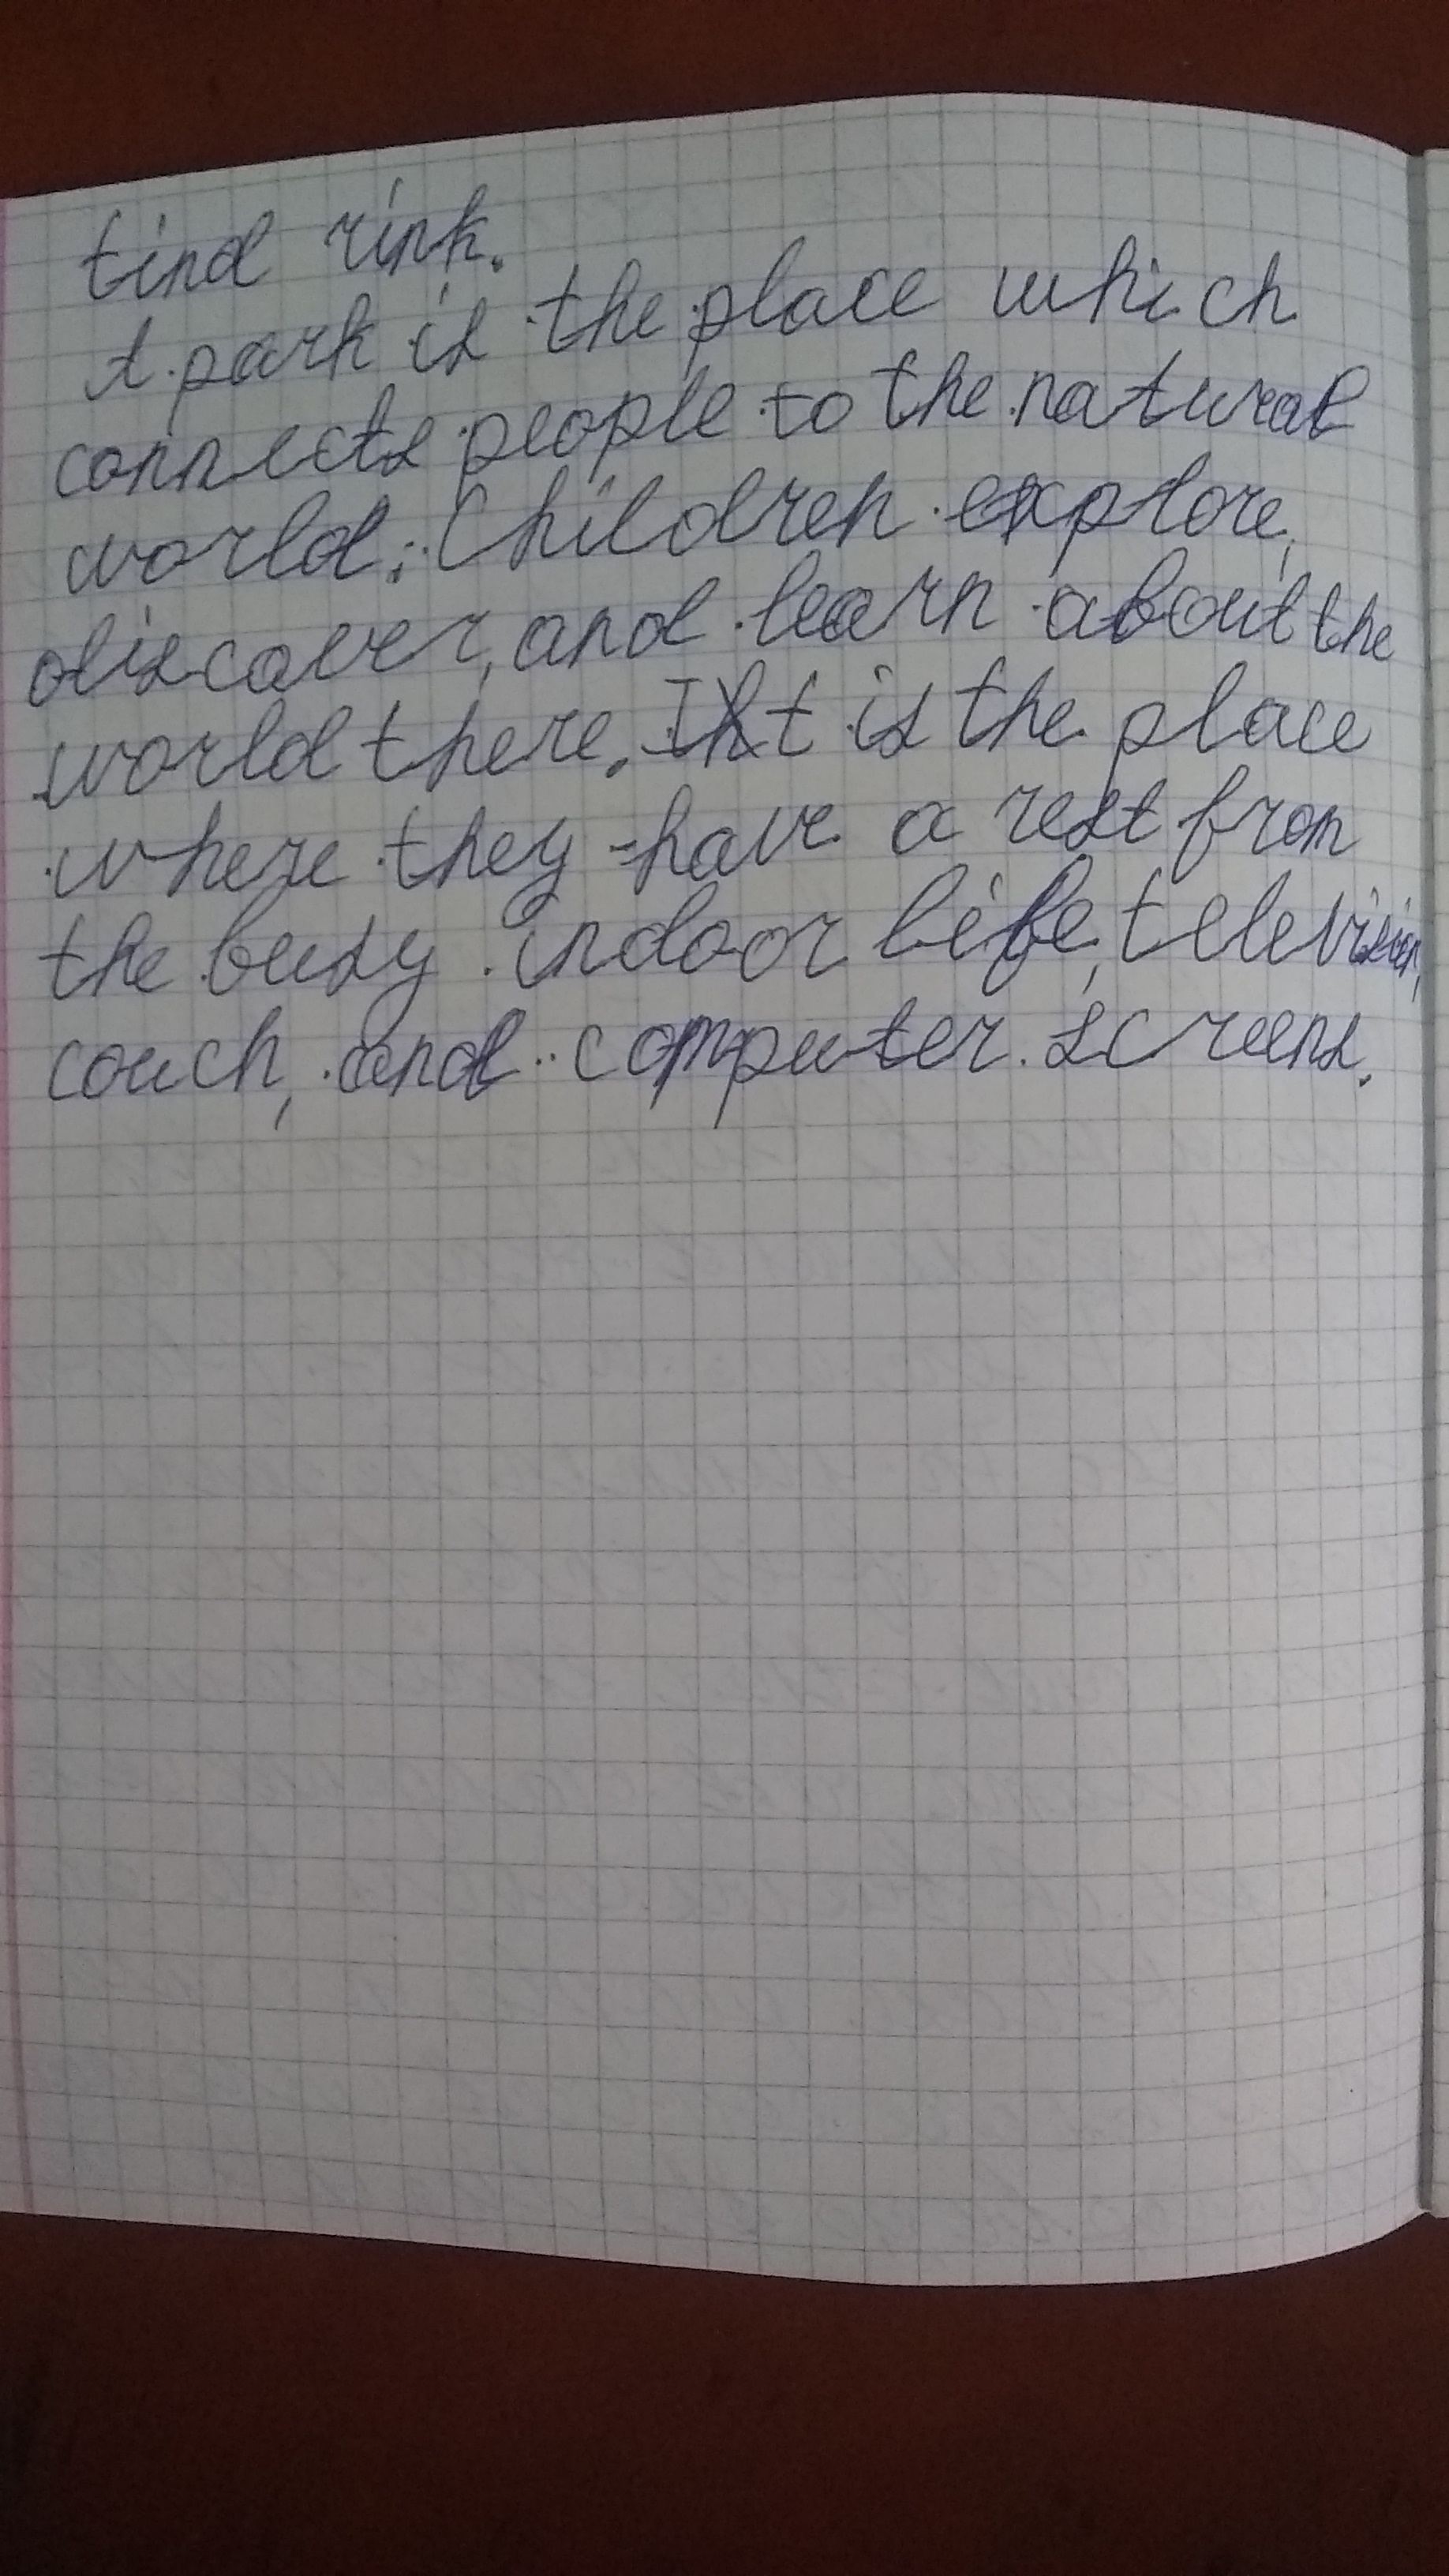 tind rink.
A park is the place which
connects people to the natural
world. Children explore,
discover, and learn about the
world there. It is the place
where they have a rest from
the busy indoor life, television,
couch, and computer screens.